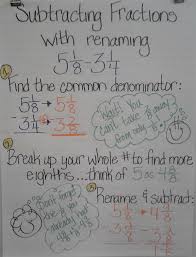 Subtracting Fractions
with renaming
5 1/8 - 3 1/4
1 Find the common denominator:
5 1/8 → 5 1/8
- 3 1/4 → - 3 2/8
Wait! You can't take 2 away from only 1!
2 Break up your whole # to find more
eighths... think of 5 as 4 8/8
Don't forget the 1/8 you already had
3 Rename & subtract:
5 1/8 → 4 9/8
- 3 2/8 → - 3 2/8